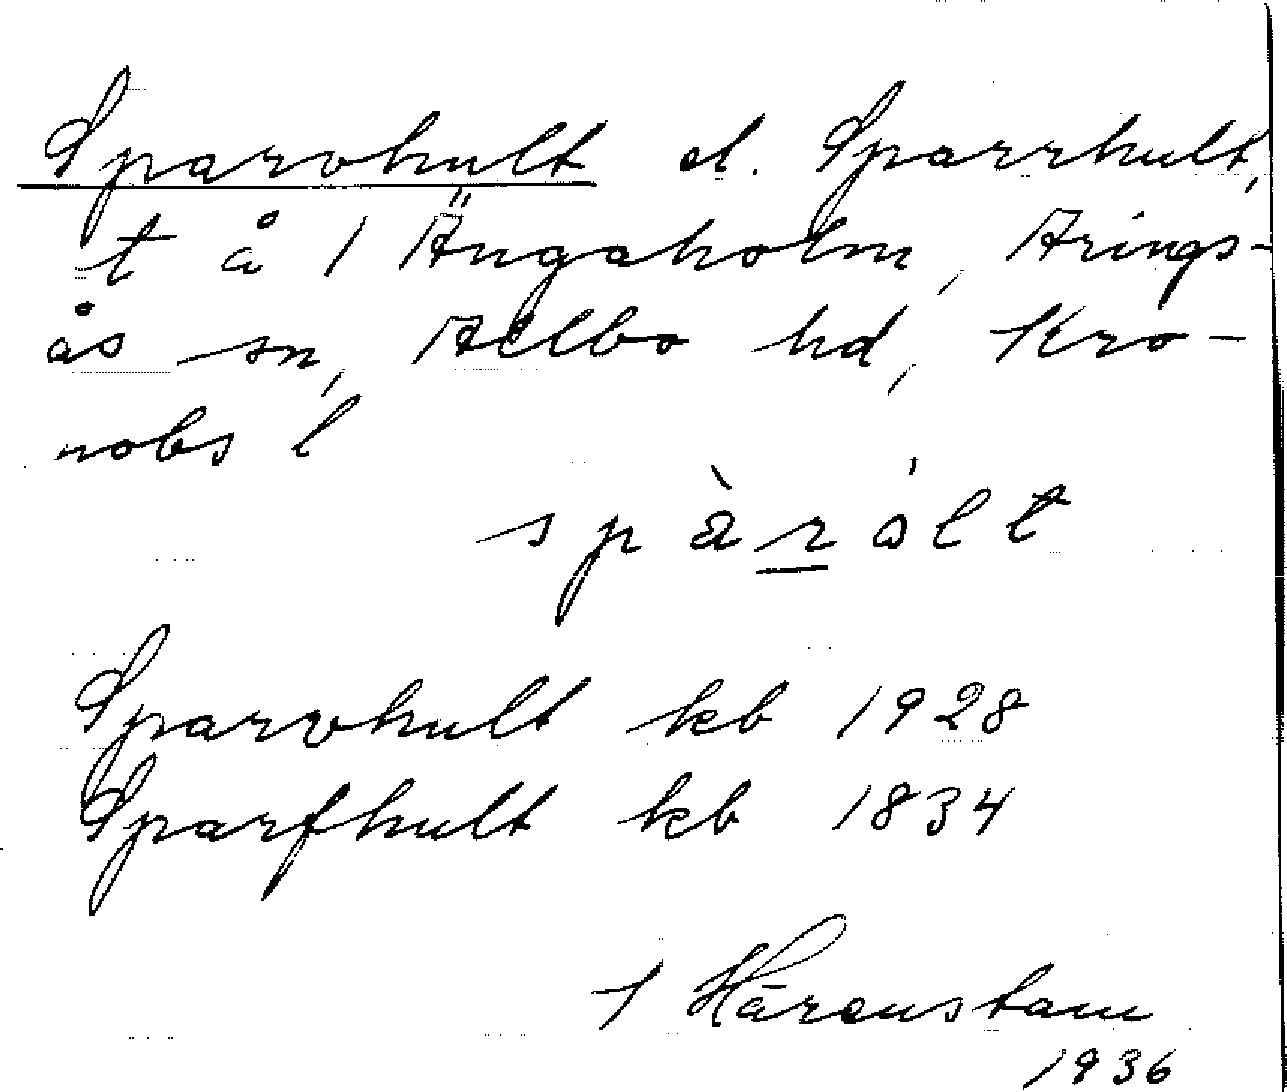 Sparvhult el. Sparrhult,
t å 1 Ängaholm, Arings-
ås sn, Allbo hd, Kro-
nobs l
spàrált
Sparvhult kb 1928
Sparfhult kb 1834
I Härenstam
1936